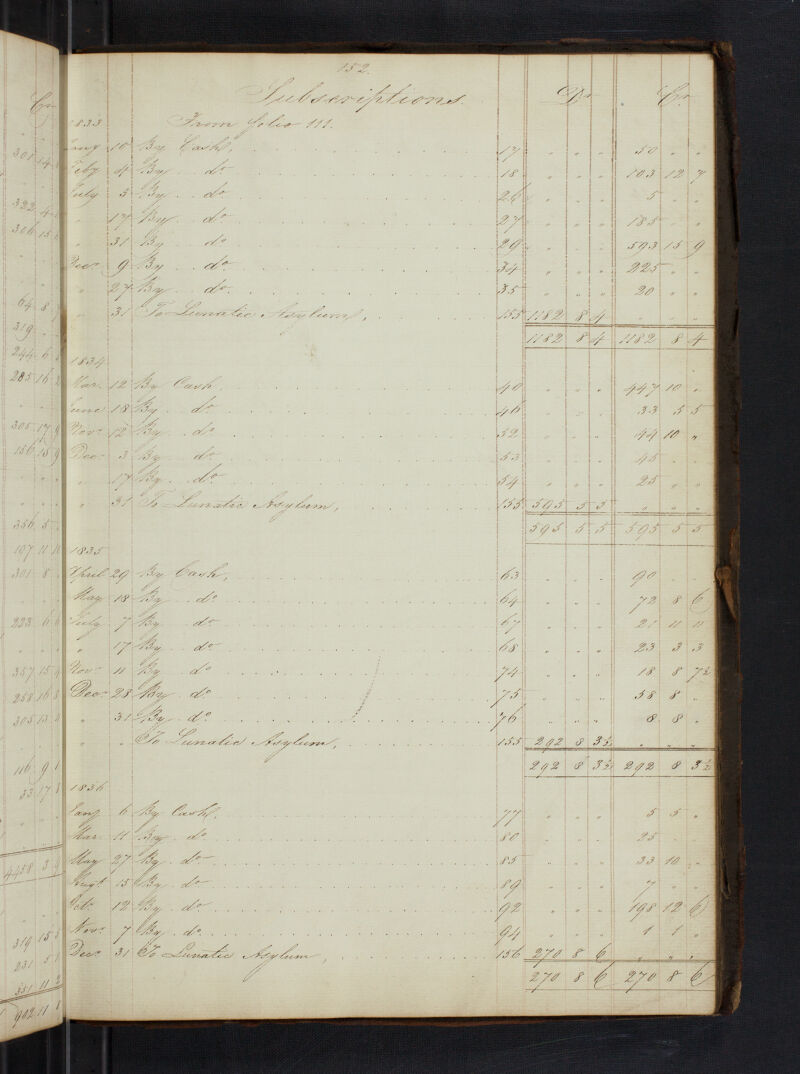 Cr
301 14
322 4
306 15
64 8
319
244 6
285 16
305 17 9
156 15 9
356 5
107 11 11
301 8
223 6
357 15
258 16
305 13
116 9
33 17
4458 3
319 15
231 5
351 11 2
902 11 8
152.
Subscriptions. Dr. Cr.
1833 From folio 111.
Jany 10 By Cash, 17 50 . .
Feby 4 By do 18 103 12 7
July 3 By do 26 5 . .
" 17 By do 27 185 . .
" 31 By do 29 593 15 9
Decr 9 By do 34 225 . .
" 27 By do 35 20 . .
" 31 To Lunatic Asylum, 155 1182 8 4
1182 8 4 1182 8 4
1834
Mar. 12 By Cash 40 447 10 .
June 18 By do 46 33 5 5
Novr 12 By do 52 44 10 "
Decr 3 By do 53 45 . .
" 17 By do 54 25 . .
" 31 To Lunatic Asylum, 155 595 5 5
595 5 5 595 5 5
1835
April 29 By Cash, 63 90 . .
May 18 By do 64 72 8 6
July 7 By do 67 21 11 11
" 17 By do 68 23 3 3
Novr 11 By do 74 18 8 7½
Decr 28 By do 75 58 8 .
" 31 By do 76 8 8 .
" " To Lunatic Asylum, 155 292 8 3½
292 8 3½ 292 8 3½
1836
Jany 6 By Cash. 77 5 5 .
Mar. 11 By do 80 25 . .
May 27 By do 85 33 10 .
Augt 15 By do 89 7 . .
Octr 12 By do 92 198 12 6
Novr 7 By do 94 1 1 .
Decr 31 To Lunatic Asylum, 156 270 8 6
270 8 6 270 8 6